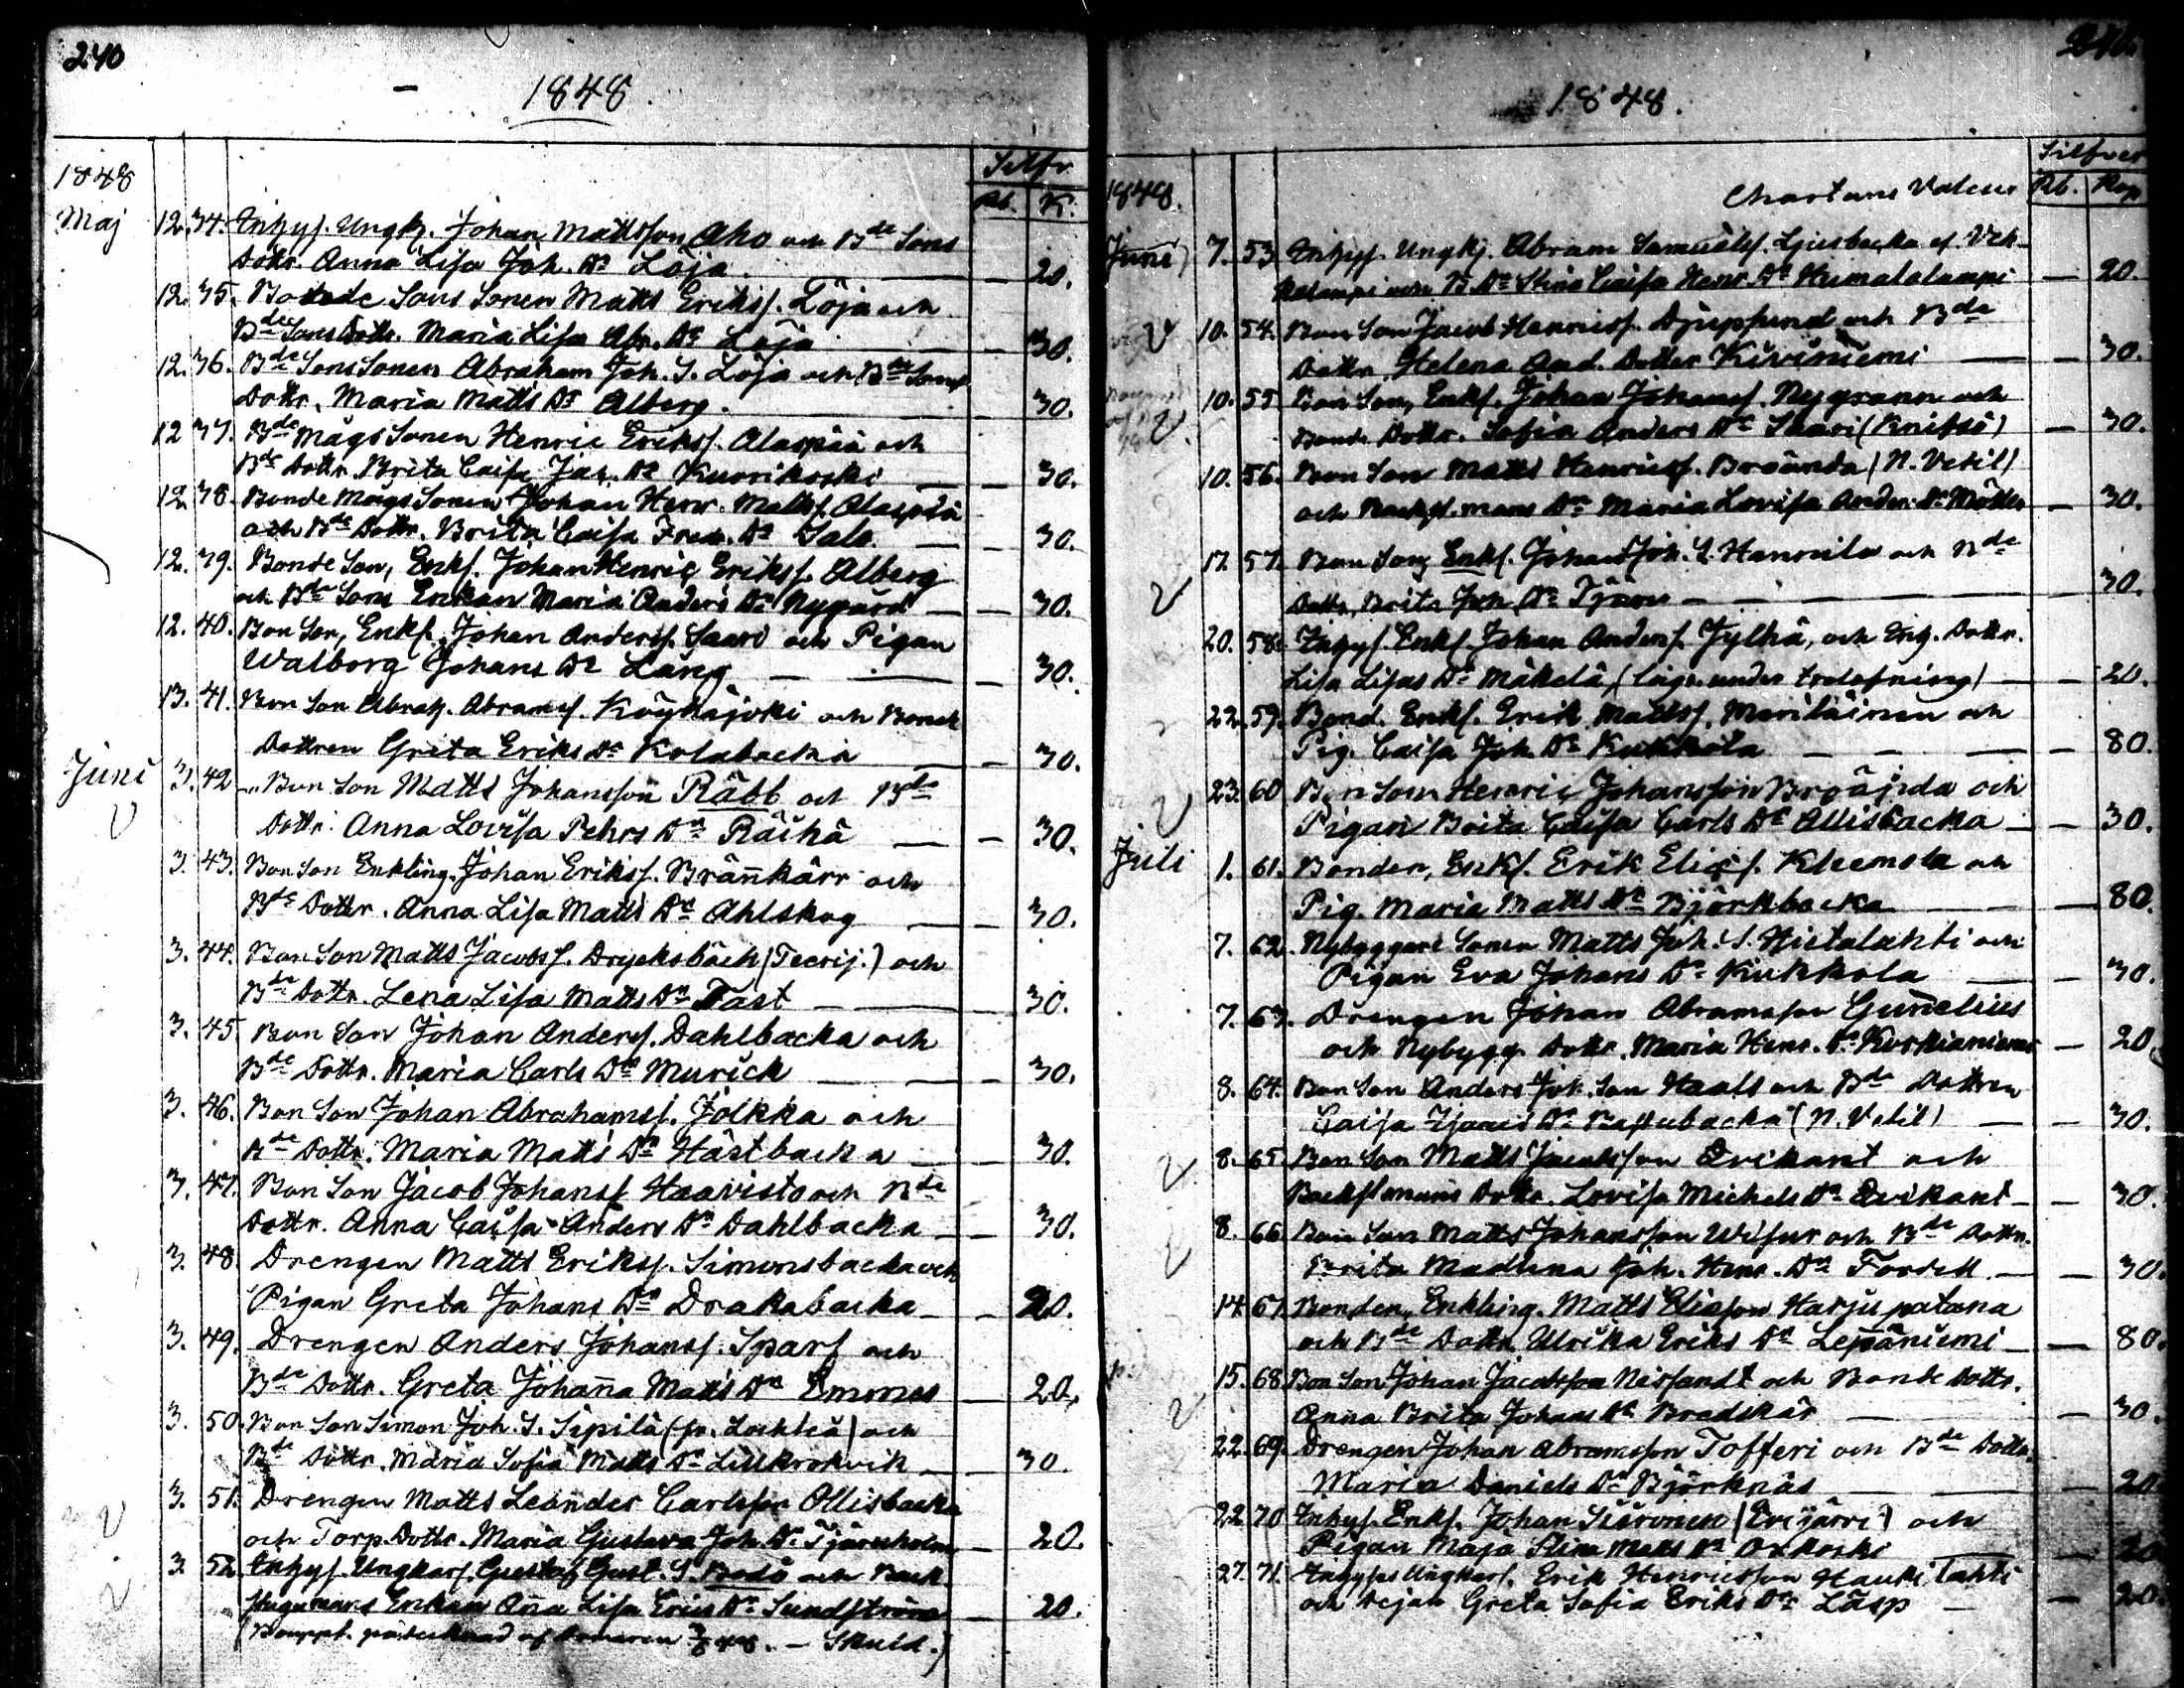 240
1848.
Silfr.
Rb. K.
1848
Maj 12. 34. Inhys. Ungk. Johan Mattsson Aho och Bde Sons
Dottr. Anna Lisa Joh. Dr Löja. — 20.
12. 35. Bonde Sons Sonen Matts Erikss. Löja och
Bde Sons Dottr. Maria Lisa Abr. Dr Löja — 30.
12. 36. Bde Sons Sonen Abraham Joh. S. Löja och Bde Sons
Dottr. Maria Matts Dr Alberg. — 30.
12 37. Bde Mågs Sonen Henric Erikss. Alaspää och
Bde Dottr. Brita Caisa Jac. Dr Kuorikoski — 30.
12. 38. Bonde Mågs Sonen Johan Henr. Matts. Alaspää
och Bde Dottr. Brita Caisa Fredr. Dr Salo. — 30.
12. 39. Bonde Son, Enkl. Johan Henric Erikss. Alberg
och Bde Sons Enkan Maria Anders Dr Nygård — 30.
12. 40. Bon Son, Enkl. Johan Anderss. Saari och Pigan
Walborg Johans Dr Lång — 30.
13. 41. Bon Son Abrah. Abramss. Köyhäjoki och Bonde
Dottren Greta Eriks Dr Kolabacka — 30.
Juni 3. 42 Bon Son Matts Johansson Räbb och Bde
Dottr. Anna Lovisa Pehrs Dr Räihä — 30.
3. 43. Bon Son Enkling. Johan Erikss. Brännkärr och
Bde Dottr. Anna Lisa Matts Dr Ahlskog — 30.
3. 44. Bon Son Matts Jacobss. Drycksbäck (Teerij.) och
Bde Dottr. Lena Lisa Matts Dr Fast — 30.
3. 45 Bon Son Johan Anderss. Dahlbacka och
Bde Dottr. Maria Carls Dr Murick — 30.
3. 46. Bon Son Johan Abrahamss. Jolkka och
Bde Dottr. Maria Matts Dr Hästbacka — 30.
3. 47. Bon Son Jacob Johanss. Haavisto och Bde
Dottr. Anna Caisa Anders Dr Dahlbacka — 30.
3. 48 Drengen Matts Erikss. Simonsbacka och
Pigan Greta Johans Dr Drakabacka — 20.
3. 49. Drengen Anders Johanss. Sparf och
Bde Dottr. Greta Johanna Matts Dr Emmes — 20.
3. 50. Bon Son Simon Joh. S. Sipilä (fr. Lochteå) och
Bde Dottr. Maria Sofia Matts Dr Liukrokvik — 30.
3. 51. Drengen Matts Leander Carlsson Ollisbacka
och Torp. Dottr. Maria Gustava Joh. Dr Tjärnholm — 20.
3. 52. Inhys. Ungkarl. Gustaf Gust. S. Bodö och Back-
stugumans Enkan Anna Lisa Erics Dr Sundström — 20.
1848.
Silfver
Chartans Valeur Rb. Kop
1848.
Juni 7. 53 Inhys. Ungkj. Abram Samuelss. Ljusbacka
och B. Dr Stina Caisa Henr. Dr Humalalampi — 20.
10. 54. Bon Son Jacob Henricss. Djupsund och Bde
Dottr. Helena And. Dotter Kiviniemi — 30.
10. 55 Bon Son, Enkl. Johan Johanss. Nygrann och
Bonde Dottr. Sofia Anders Dr Saari (Knifsö) — 30.
10. 56. Bon Son Matts Henricss. Broända (N. Vetil)
och Backst. mans Dr Maria Lovisa Anders Dr — 30.
17. 57. Bon Son, Enkl. Johan Joh. S. Hannila och Bde
Dottr. Brita Joh. Dr Tjäru — 30.
20. 58. Inhys. Enkl. Johan Anders. Jylhä, och Inh. Dottr.
Lisa Lisas Dr Mäkelä, (lägr. under trolofning) — 20.
22. 59. Bond. Enkl. Erik Mattss. Meriläinen och
Pig. Caisa Joh. Dr Kukkola — 80.
23. 60 Bon Son Henric Johansson Broända och
Pigan Brita Caisa Carls Dr Ollisbacka — 30.
Juli 1. 61. Bonden, Enkl. Erik Elics. Klemola och
Pig. Maria Matts Dr Björkbacka — 80.
7. 62. Nybyggare Sonen Matts Joh. S. Hietalahti och
Pigan Eva Johans Dr Kukkola — 30.
7. 63. Drengen Johan Abramsson Gunelius
och Nybygg. Dottr. Maria Henr. Dr — 20
8. 64. Bon Son Anders Joh. Son Haals och Bde Dottren
Caisa Dr (N. Vetil) — 30.
8. 65. Bon Son Matts Jacobsson Qvikant och
Backstmans Dottr. Lovisa Michels Dr Qvikant — 30.
8. 66. Bon Son Matts Johansson och Bde Dottr.
Brita Madlena Joh. Henr. Dr Fordell — 30.
14. 67. Bonden, Enkling. Matts Eliasson Harjupatana
och Bde Dottr. Ulrika Eriks Dr Lepäniemi — 80.
15. 68. Bon Son Johan Jacobsson Nissandt och Bonde Dottr.
Anna Brita Johans Dr Bredskär — 30.
22. 69. Drengen Johan Abramsson Tofferi och Bde Dottr.
Maria Daniels Dr Björknäs — 20
22 70 Inhys. Enkl. Johan Siironen (Evijärvi) och
Pigan Maja Stina Matts Dr Oxkoski — 20
27. 71. Inhyses Ungkarl. Erik Henricsson Hauki Lahti
och Dejan Greta Sofia Eriks Dr Läsp — 20.